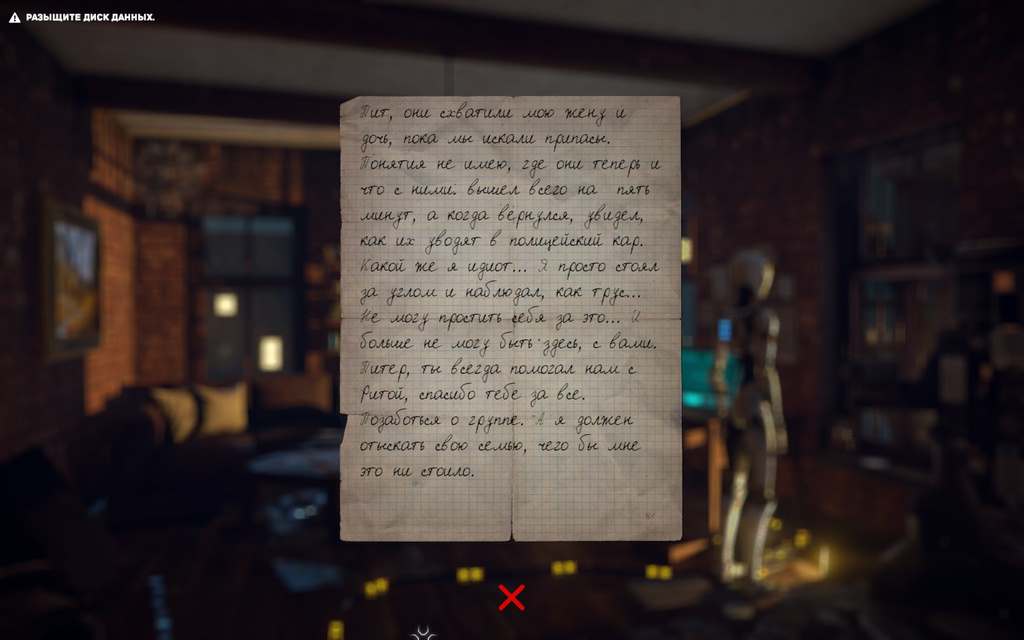 РАЗЫЩИТЕ ДИСК ДАННЫХ.
Пит, они схватили мою жену и
дочь, пока мы искали припасы.
Понятия не имею, где они теперь и
что с ними. вышел всего на пять
минут, а когда вернулся, увидел,
как их уводят в полицейский кар.
Какой же я идиот... Я просто стоял
за углом и наблюдал, как трус...
Не могу простить себя за это... И
больше не могу быть здесь, с вами.
Питер, ты всегда помогал нам с
Ритой, спасибо тебе за все.
Позаботься о группе. А я должен
отыскать свою семью, чего бы мне
это ни стоило.